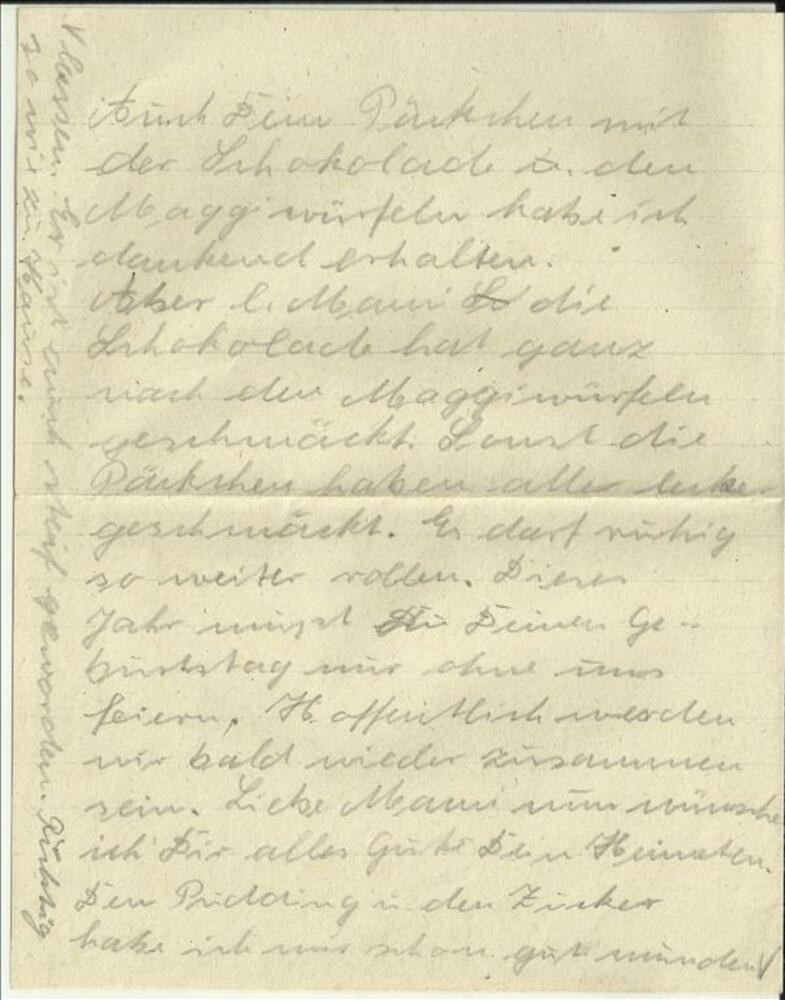 Auch Dein Päckchen mit
der Schokolade u. den
Maggiwürfeln habe ich
dankend erhalten.
Aber l. Mami die
Schokolade hat ganz
nach den Maggiwürfeln
geschmäckt. Sonst die
Päckchen haben alle lecker
geschmäckt. Es darf ruhig
so weiter rollen. Dieses
Jahr mußt Du Deinen Ge-
burtstag nur ohne uns
feiern. Hoffentlich werden
wir bald wieder zusammen
sein. Liebe Mami nun wünsche
ich Dir alles Gute Dein
Den Pudding u. den Zucker
habe ich mir schon gut munden
lassen. Er ist auch steif geworden. Richtig
so wie zu Hause.